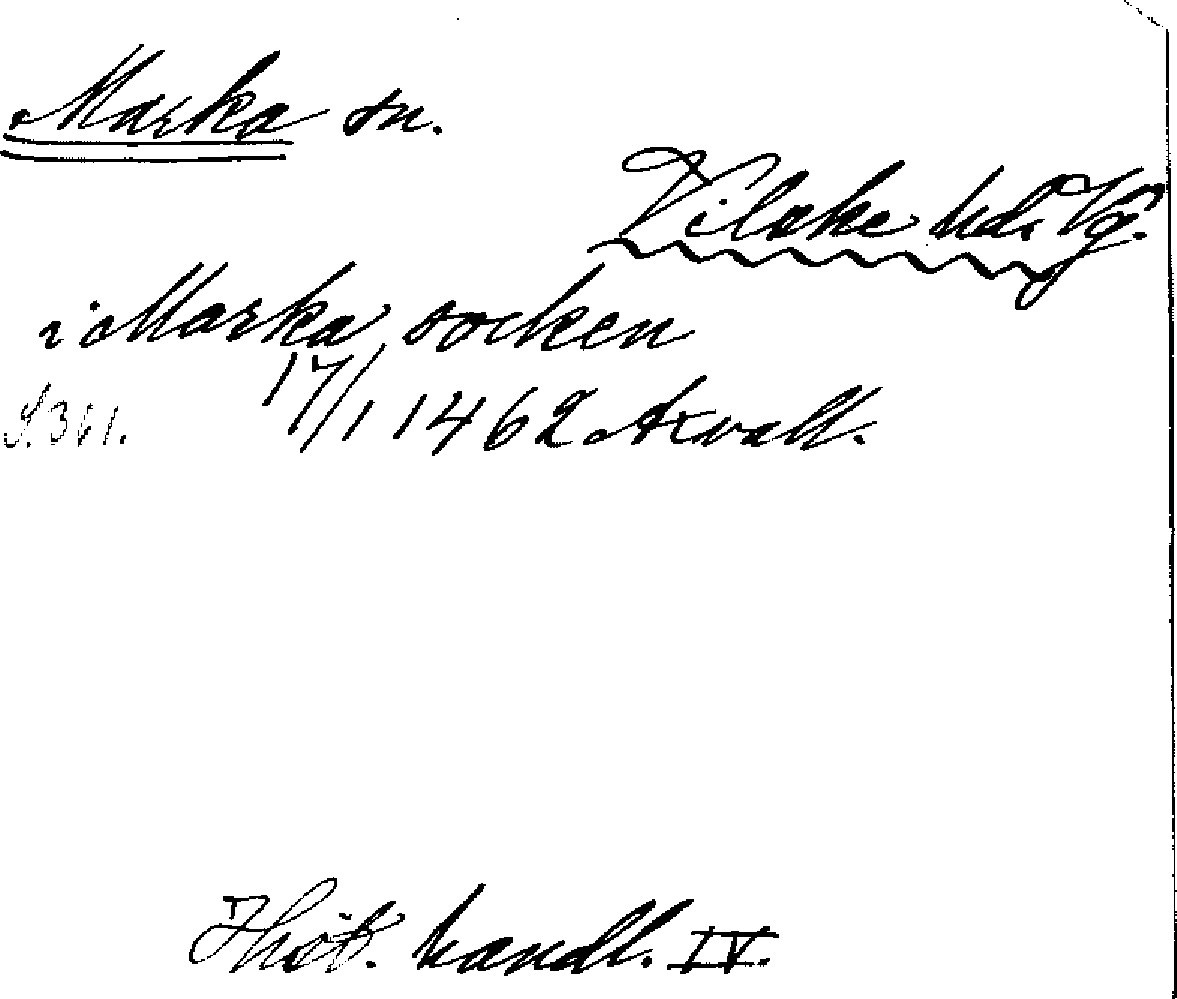 Marka sn.
Vilske hd. Vg.
i Marka socken
S. 361. 17/1 1462 Akvall.
Hist. handl. IV.